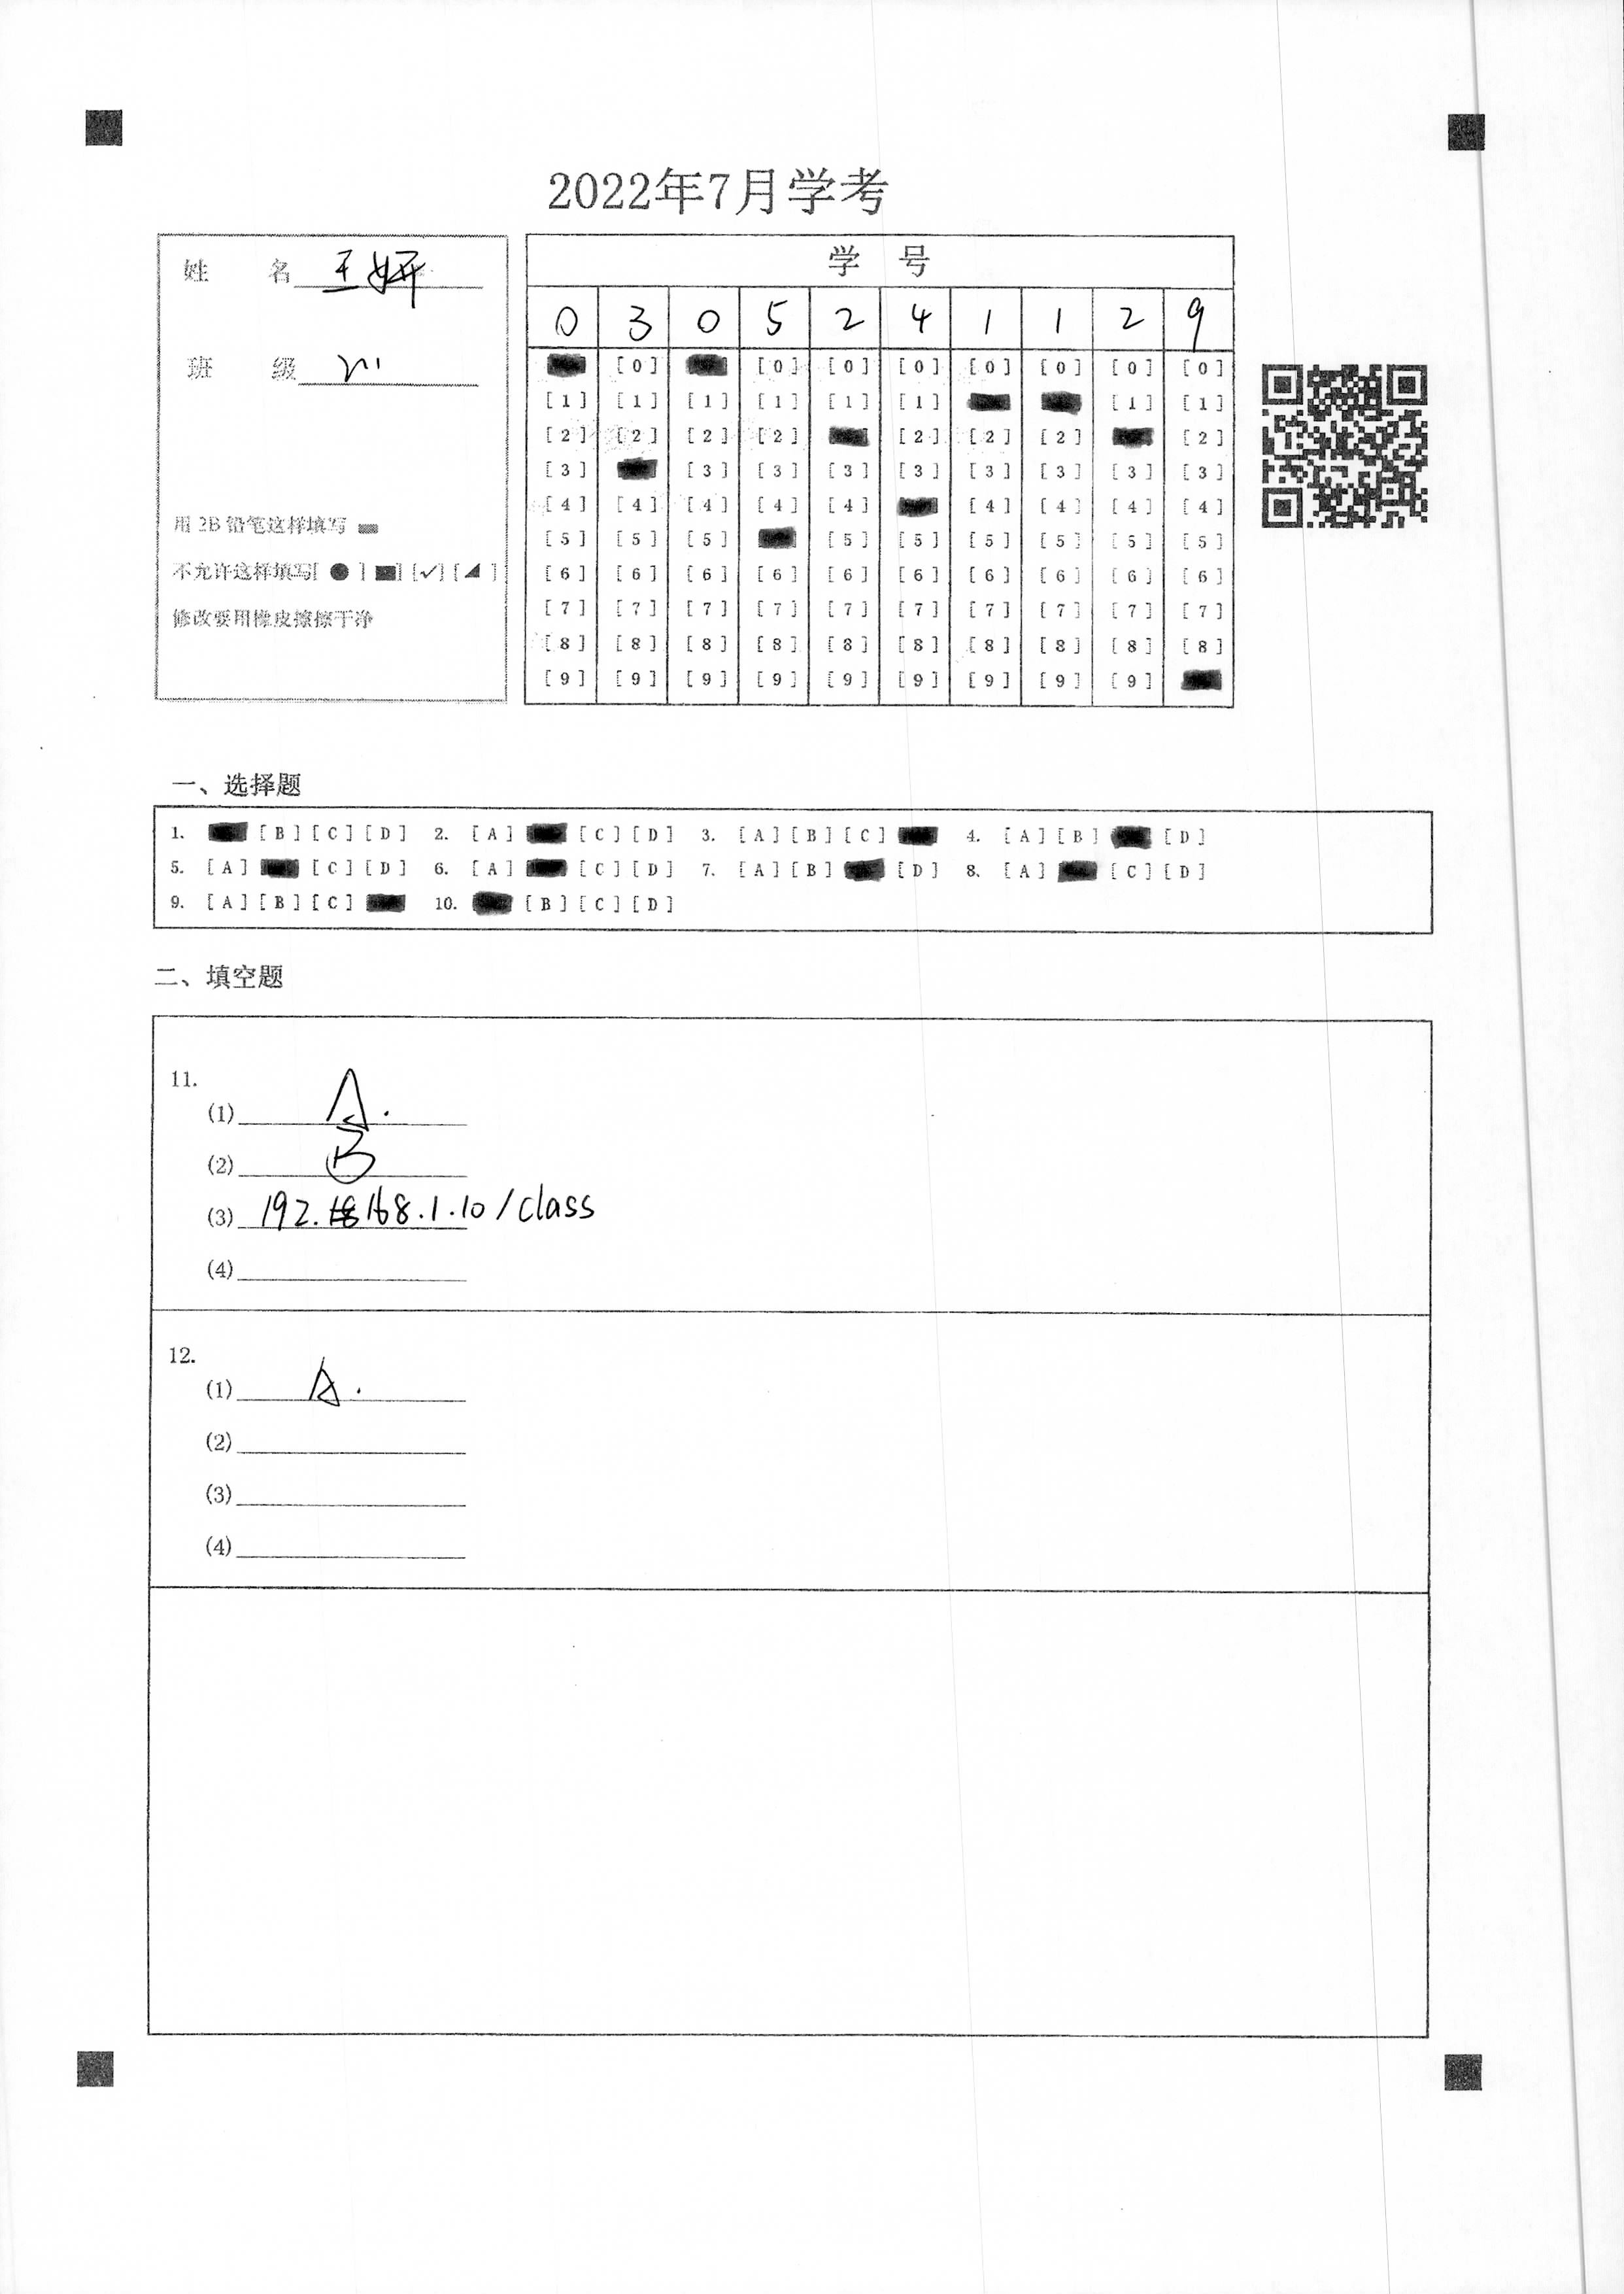 2022年7月学考
姓 名 王妍
班 级
用 2B 铅笔这样填写
不允许这样填写[ ● ] [■] [✓] [◢ ]
修改要用橡皮擦擦干净
学 号
0 3 0 5 2 4 1 1 2 9
[0] [0] [0] [0] [0] [0] [0] [0]
[1] [1] [1] [1] [1] [1] [1] [1]
[2] [2] [2] [2] [2] [2] [2] [2]
[3] [3] [3] [3] [3] [3] [3] [3] [3]
[4] [4] [4] [4] [4] [4] [4] [4] [4]
[5] [5] [5] [5] [5] [5] [5] [5] [5]
[6] [6] [6] [6] [6] [6] [6] [6] [6] [6]
[7] [7] [7] [7] [7] [7] [7] [7] [7] [7]
[8] [8] [8] [8] [8] [8] [8] [8] [8] [8]
[9] [9] [9] [9] [9] [9] [9] [9] [9]
一、选择题
1. [B] [C] [D] 2. [A] [C] [D] 3. [A] [B] [C] 4. [A] [B] [D]
5. [A] [C] [D] 6. [A] [C] [D] 7. [A] [B] [D] 8. [A] [C] [D]
9. [A] [B] [C] 10. [B] [C] [D]
二、填空题
11.
(1) A.
(2) B
(3) 192.168.1.10/class
(4)
12.
(1) A.
(2)
(3)
(4)